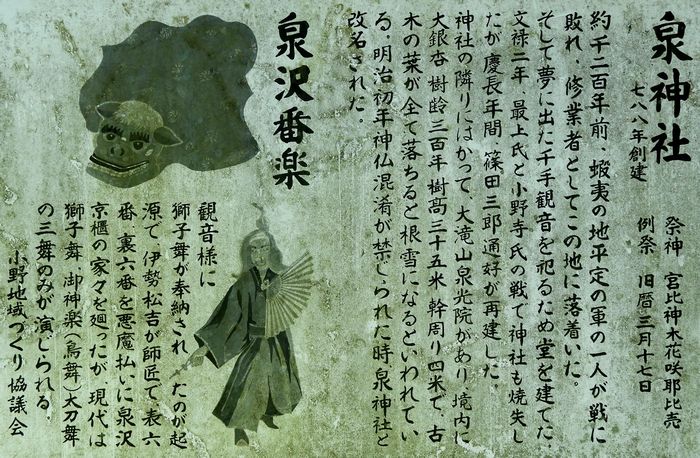 泉神社
七八八年創建
祭神 宮比神木花咲耶比売
例祭 旧暦三月十七日
約千二百年前、蝦夷の地平定の軍の一人が戦に
敗れ、修業者としてこの地に落着いた。
そして夢に出た千手観音を祀るため堂を建てた。
文禄二年、最上氏と小野寺氏の戦で神社も焼失し
たが慶長年間、篠田三郎通好が再建した。
神社の隣りにはかって、大滝山泉光院があり、境内に
大銀杏 樹齢三百年 樹高三十五米 幹周り四米で、古
木の葉が全て落ちると根雪になるといわれてい
る。明治初年神仏混淆が禁じられた時泉神社と
改名された。
泉沢番楽
観音様に
獅子舞が奉納され たのが起
源で、伊勢松吉が師匠で、表六
番、裏六番を悪魔払いに泉沢
京櫃の家々を廻ったが、現代は
獅子舞 御神楽(鳥舞)太刀舞
の三舞のみが演じられる。
小野地域づくり協議会